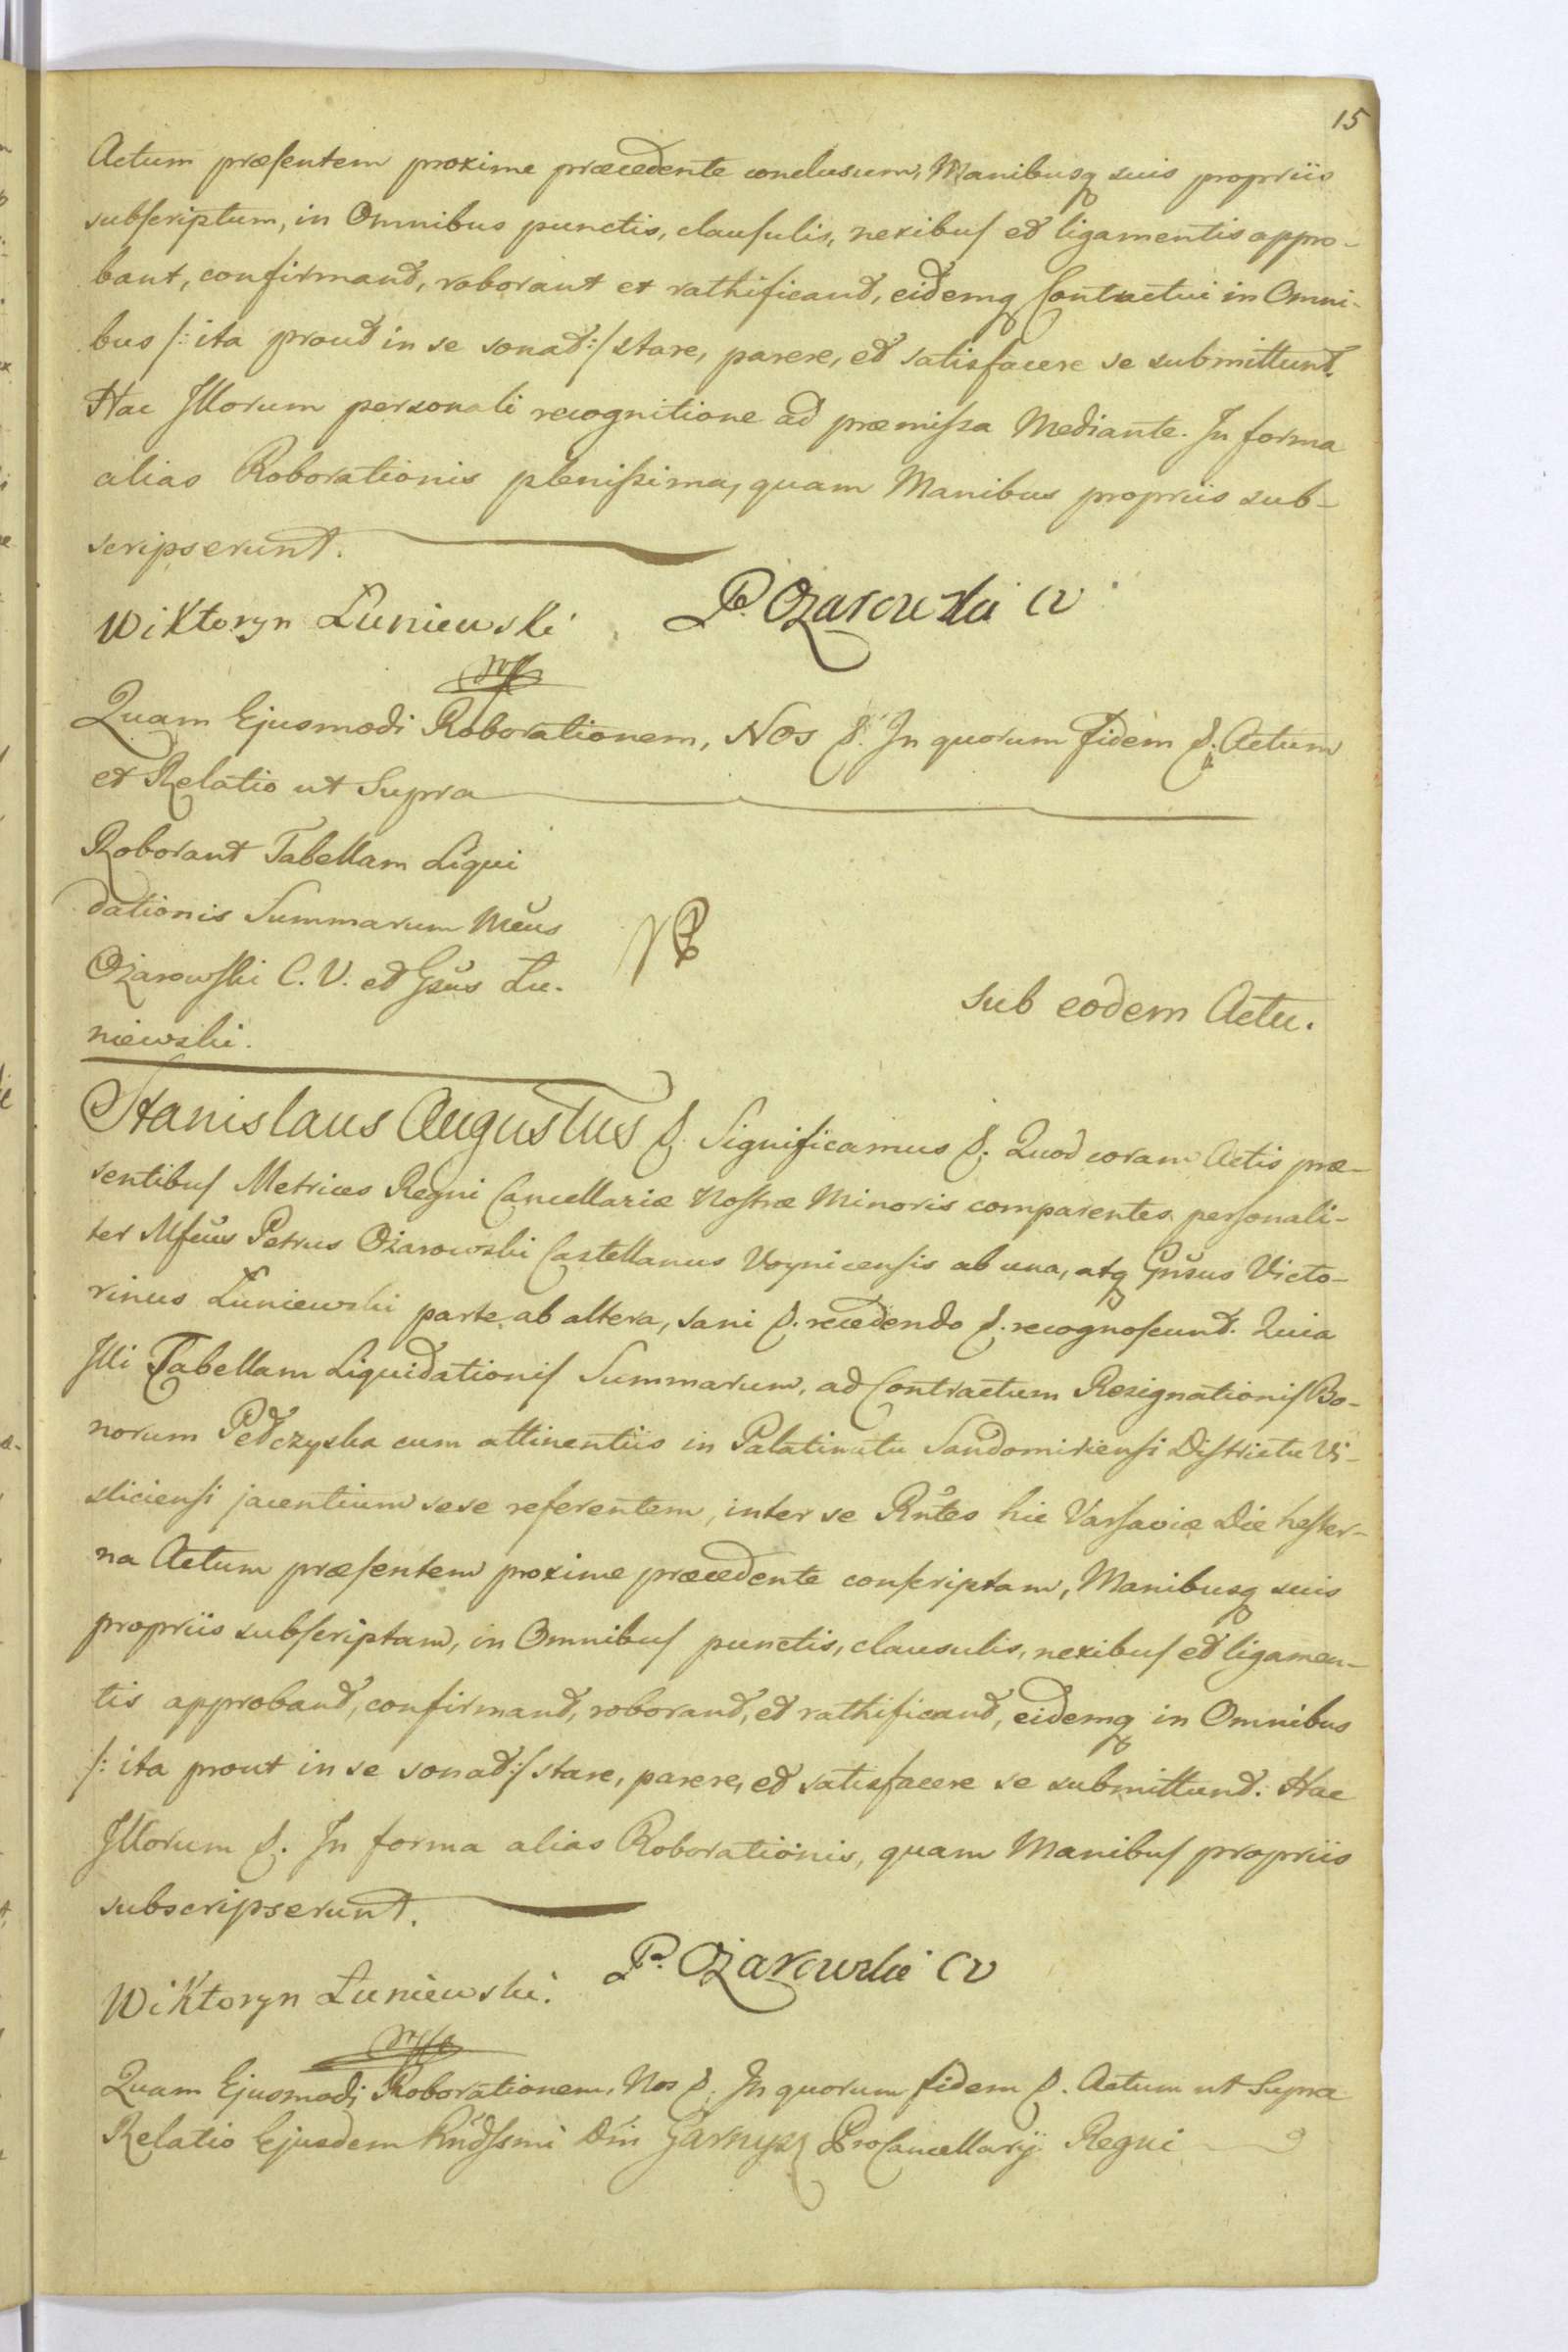 15
Actum præsentem proxime præcedente conclusum, Manibusq suis propriis
subscriptum, in Omnibus punctis, clausulis, nexibus et ligamentis appro-
bant, confirmant, roborant et rathificant, eidemq Contractui in Omni-
bus /: ita prout in se sonat :/ stare, parere, et satisfacere se submittunt.
Hac Illorum personali recognitione ad præmissa Mediante. In forma
alias Roborationis plenissima, quam Manibus propriis sub-
scripserunt.
Wiktoryn Łuniewski P. Ożarowski CV
Quam Ejusmodi Roborationem, Nos &. In quorum fidem &. Actum
et Relatio ut Supra
Roborant Tabellam Liqui
dationis Summarum Mcus
Ożarowski C. V. et Gsus Łu-
niewski.
sub eodem Actu.
Stanislaus Augustus &. Significamus &. Quod coram Actis præ-
sentibus Metrices Regni Cancellariæ Nostræ Minoris comparentes personali-
ter Mfcus Petrus Ożarowski Castellanus Voynicensis ab una, atq Gnsus Victo-
rinus Łuniewski parte ab altera, sani &. recedendo &. recognoscunt. Quia
Illi Tabellam Liquidationis Summarum, ad Contractum Resignationis Bo-
norum Pełczyska cum attinentiis in Palatinatu Sandomiriensi Districtu Vi-
sliciensi jacentium sese referentem, inter se Rntes hic Varsaviæ Die hester-
na Actum præsentem proxime præcedente conscriptam, Manibusq suis
propriis subscriptam, in Omnibus punctis, clausulis, nexibus et ligamen-
tis approbant, confirmant, roborant, et rathificant, eidemq in Omnibus
/: ita prout in se sonat :/ stare, parere, et satisfacere se submittunt. Hac
Illorum &. In forma alias Roborationis, quam Manibus propriis
subscripserunt.
Wiktoryn Łuniewski. P. Ożarowski CV
Quam Ejusmodi Roborationem, Nos &. In quorum fidem &. Actum ut Supra
Relatio Ejusdem Rndssmi Dni Garnysz ProCancellarij Regni